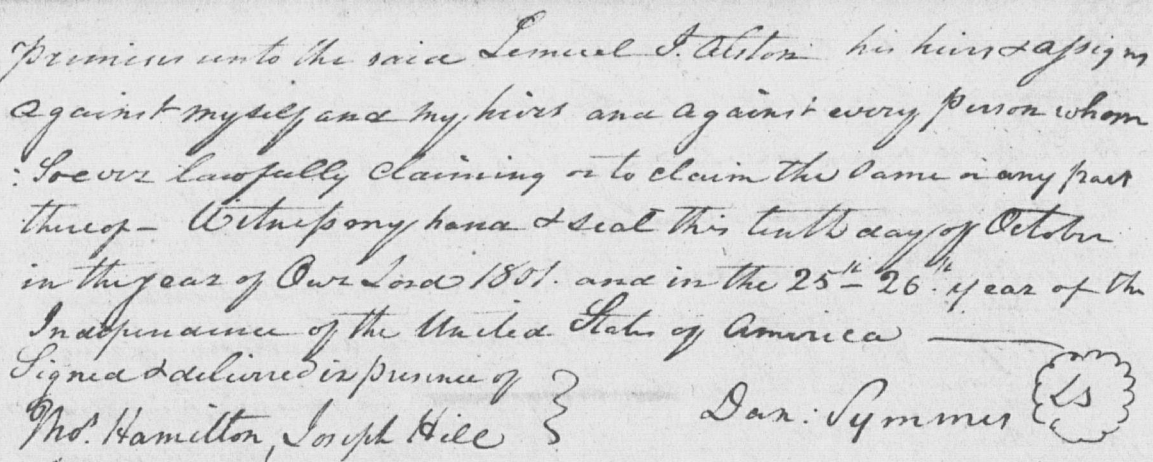 premises unto the said Lemuel J. Alston his heirs & assigns
against myself and my heirs and against every person whom
:Soever lawfully claiming or to claim the Same or any part
thereof – Witness my hand & seal this tenth day of October
in the year of Our Lord 1801. and in the 25th – 26th year of the
Independence of the United States of America ——
Signed & delivered in presence of
Thos. Hamilton, Joseph Hill } Dan: Symmes LS